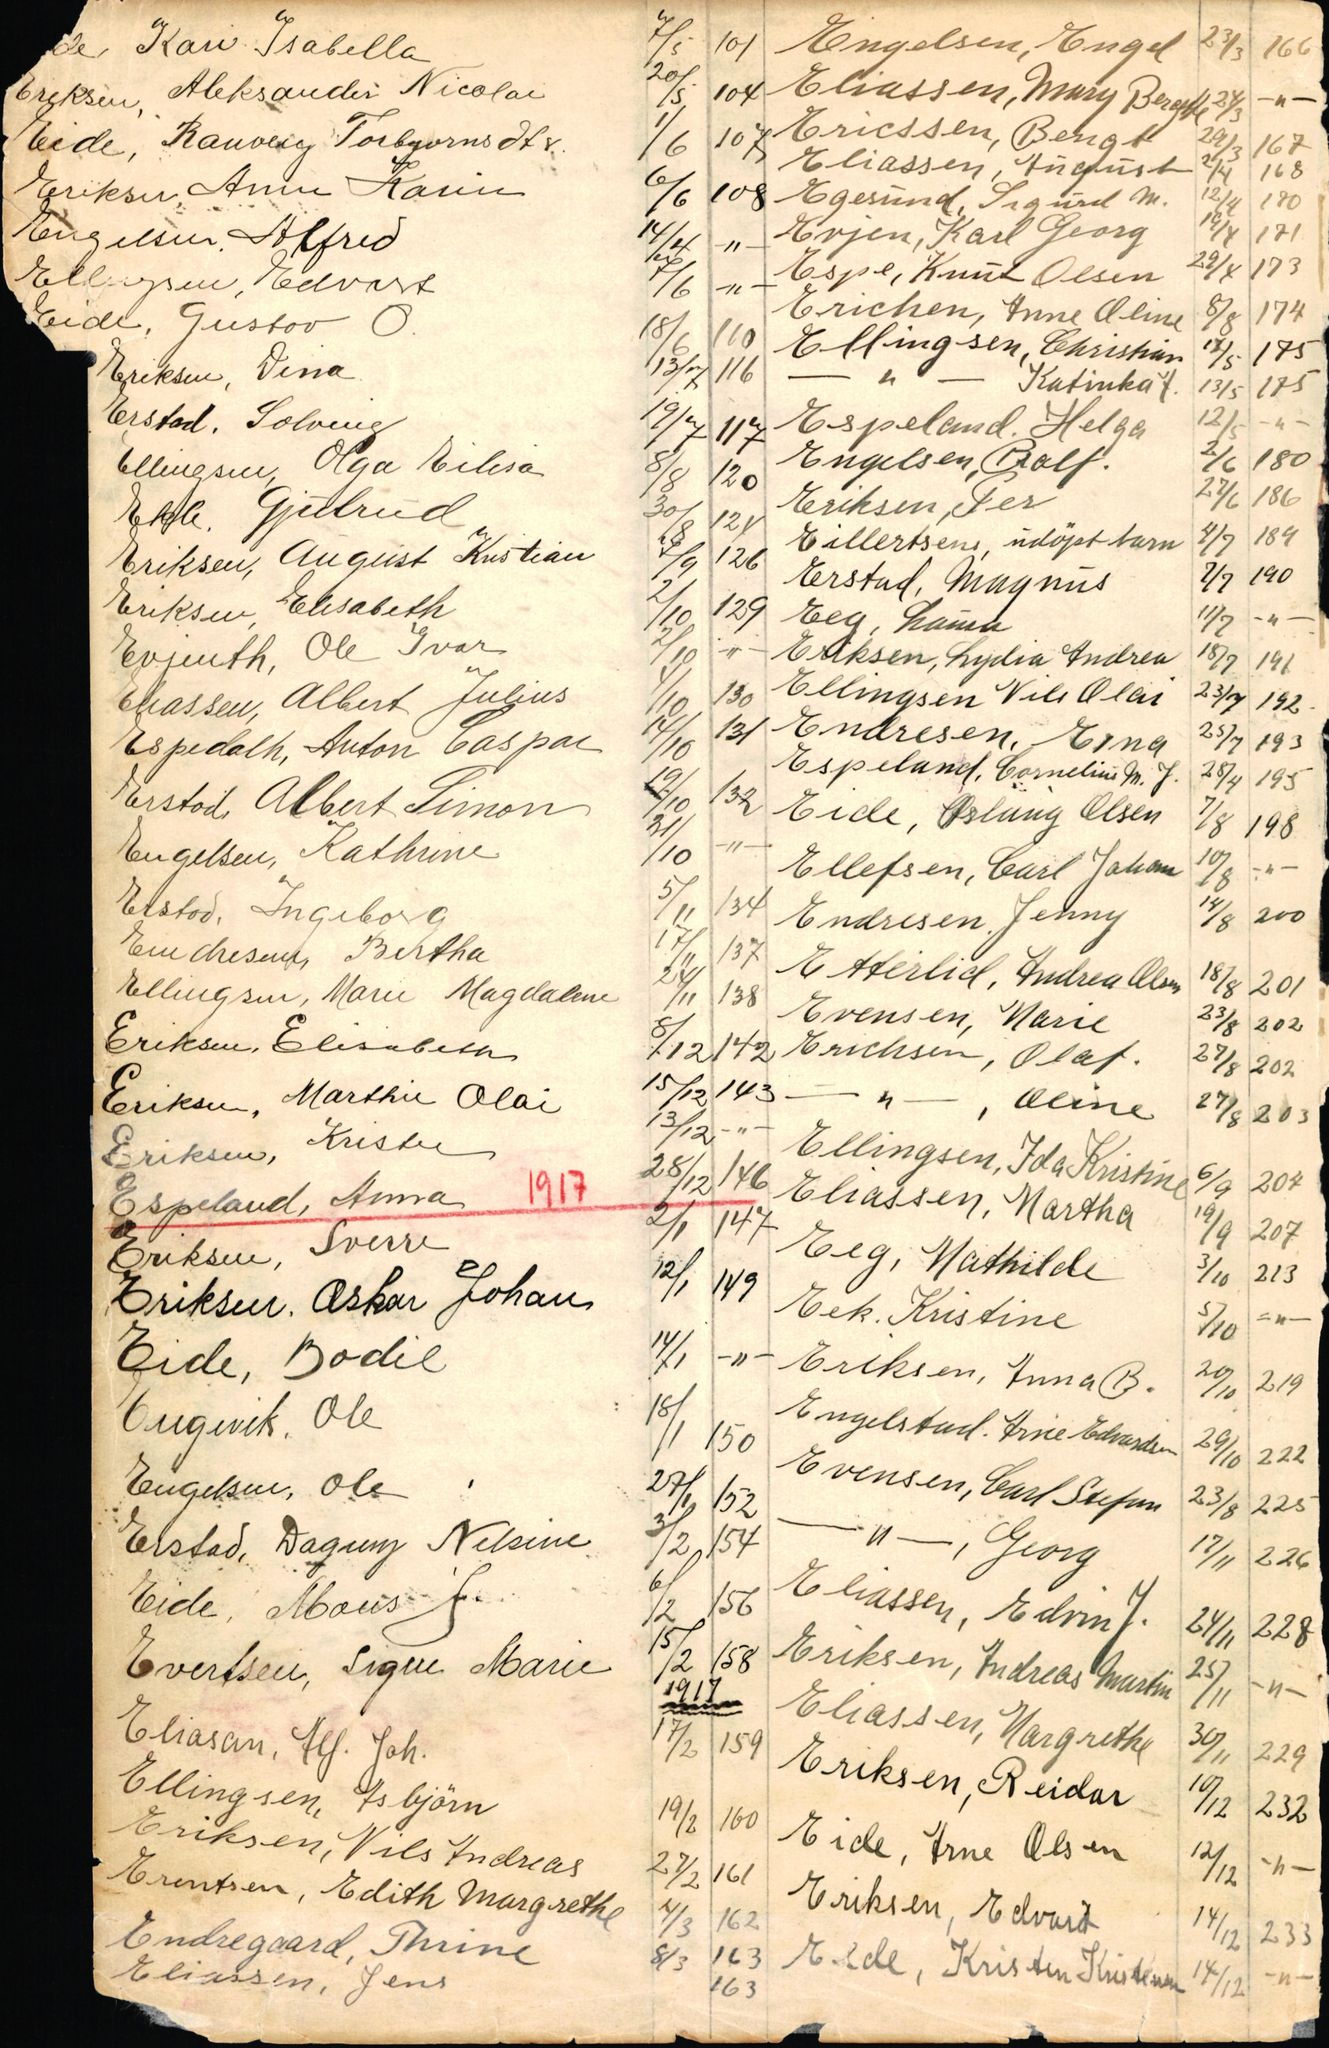 de, Kari Isabella 7/5 101
Eriksen, Aleksander Nicolai 20/5 104
Eide, Rauveig Torbjørnsdtr. 1/6 107
Eriksen, Anne Karin 6/6 108
Engelsen, Alfred 14/4 -"-
Ellingsen, Edvart 7/6 -"-
Eide, Gustav O. 18/6 110
Eriksen, Dina 13/7 116
Erstad, Solveig 19/7 117
Ellingsen, Olga Elisa 8/8 120
Ekle, Gjertrud 30/8 124
Eriksen, August Kristian 7/9 126
Eriksen, Elisabeth 2/10 129
Evjenth, Ole Ivar 2/10 -"-
Eliassen, Albert Julius 4/10 130
Espedalh, Anton Caspar 14/10 131
Erstad, Albert Simon 19/10 132
Engelsen, Kathrine 31/10 -"-
Erstad, Ingeborg 5/11 134
Endresen, Bertha 17/11 137
Ellingsen, Marie Magdalene 24/11 138
Eriksen, Elisabeth 8/12 142
Eriksen, Marthin Olai 15/12 143
Eriksen, Kristen 13/12 -"-
Espeland, Anna 1917 28/12 146
Eriksen, Sverre 2/1 147
Eriksen, Oskar Johan 12/1 149
Eide, Bodil 14/1 -"-
Engevik, Ole 18/1 150
Engelsen, Ole 27/1 152
Erstad, Dagny Nelsine 3/2 154
Eide, Mons J. 6/2 156
Evertsen, Signe Marie 15/2 158
1917
Eliasan, Alf. Joh. 17/2 159
Ellingsen, Asbjörn 19/2 160
Eriksen, Nils Andreas 27/2 161
Erentsen, Edith Margrethe 4/3 162
Endregaard, Thrine 8/3 163
Eliassen, Jens 163
Engelsen, Engel 23/3 166
Eliassen, Mary Bergitte 24/3 -"-
Ericssen, Bengt 29/3 167
Eliassen, August 2/4 168
Egesund, Sigurd M. 12/4 170
Evjen, Karl Georg 19/4 171
Espe, Knut Olsen 29/4 173
Erichen, Anne Oline 8/8 174
Ellingsen, Christian 12/5 175
-"- Katinka J. 13/5 175
Espeland, Helga 12/5 -"-
Engelsen, Ralf. 2/6 180
Eriksen, Per 27/6 186
Eillertsens, udöpt barn 4/7 189
Erstad, Magnus 7/7 190
Eeg, Laura 11/7 -"-
Eriksen, Lydia Andrea 18/7 191
Ellingsen Nils Olai 23/7 192
Endresen, Erna 25/7 193
Espeland, Cornelius M. J. 28/4 195
Eide, Aslaug Olsen 7/8 198
Ellefsen, Carl Johan 10/8 -"-
Endresen, Jenny 14/8 200
Etterlid, Andrea Olsen 18/8 201
Evensen, Marie 23/8 202
Erichsen, Olaf. 27/8 202
-"-, Oline 27/8 203
Ellingsen, Ida Kristine 6/9 204
Eliassen, Martha 19/9 207
Eeg, Mathilde 3/10 213
Eek. Kristine 5/10 -"-
Eriksen, Anna B. 20/10 219
Engelstad. Arne Edvardsen 29/10 222
Evensen, Carl Stefan 23/8 225
-"-, Georg 17/11 226
Eliassen, Edvin J. 24/11 228
Eriksen, Andreas Martin 25/11 -"-
Eliassen, Margrethe 30/11 229
Eriksen, Reidar 10/12 232
Eide, Arne Olsen 12/12 -"-
Eriksen, Edvard 14/12 233
Eide, Kristen Kristensen 14/12 -"-